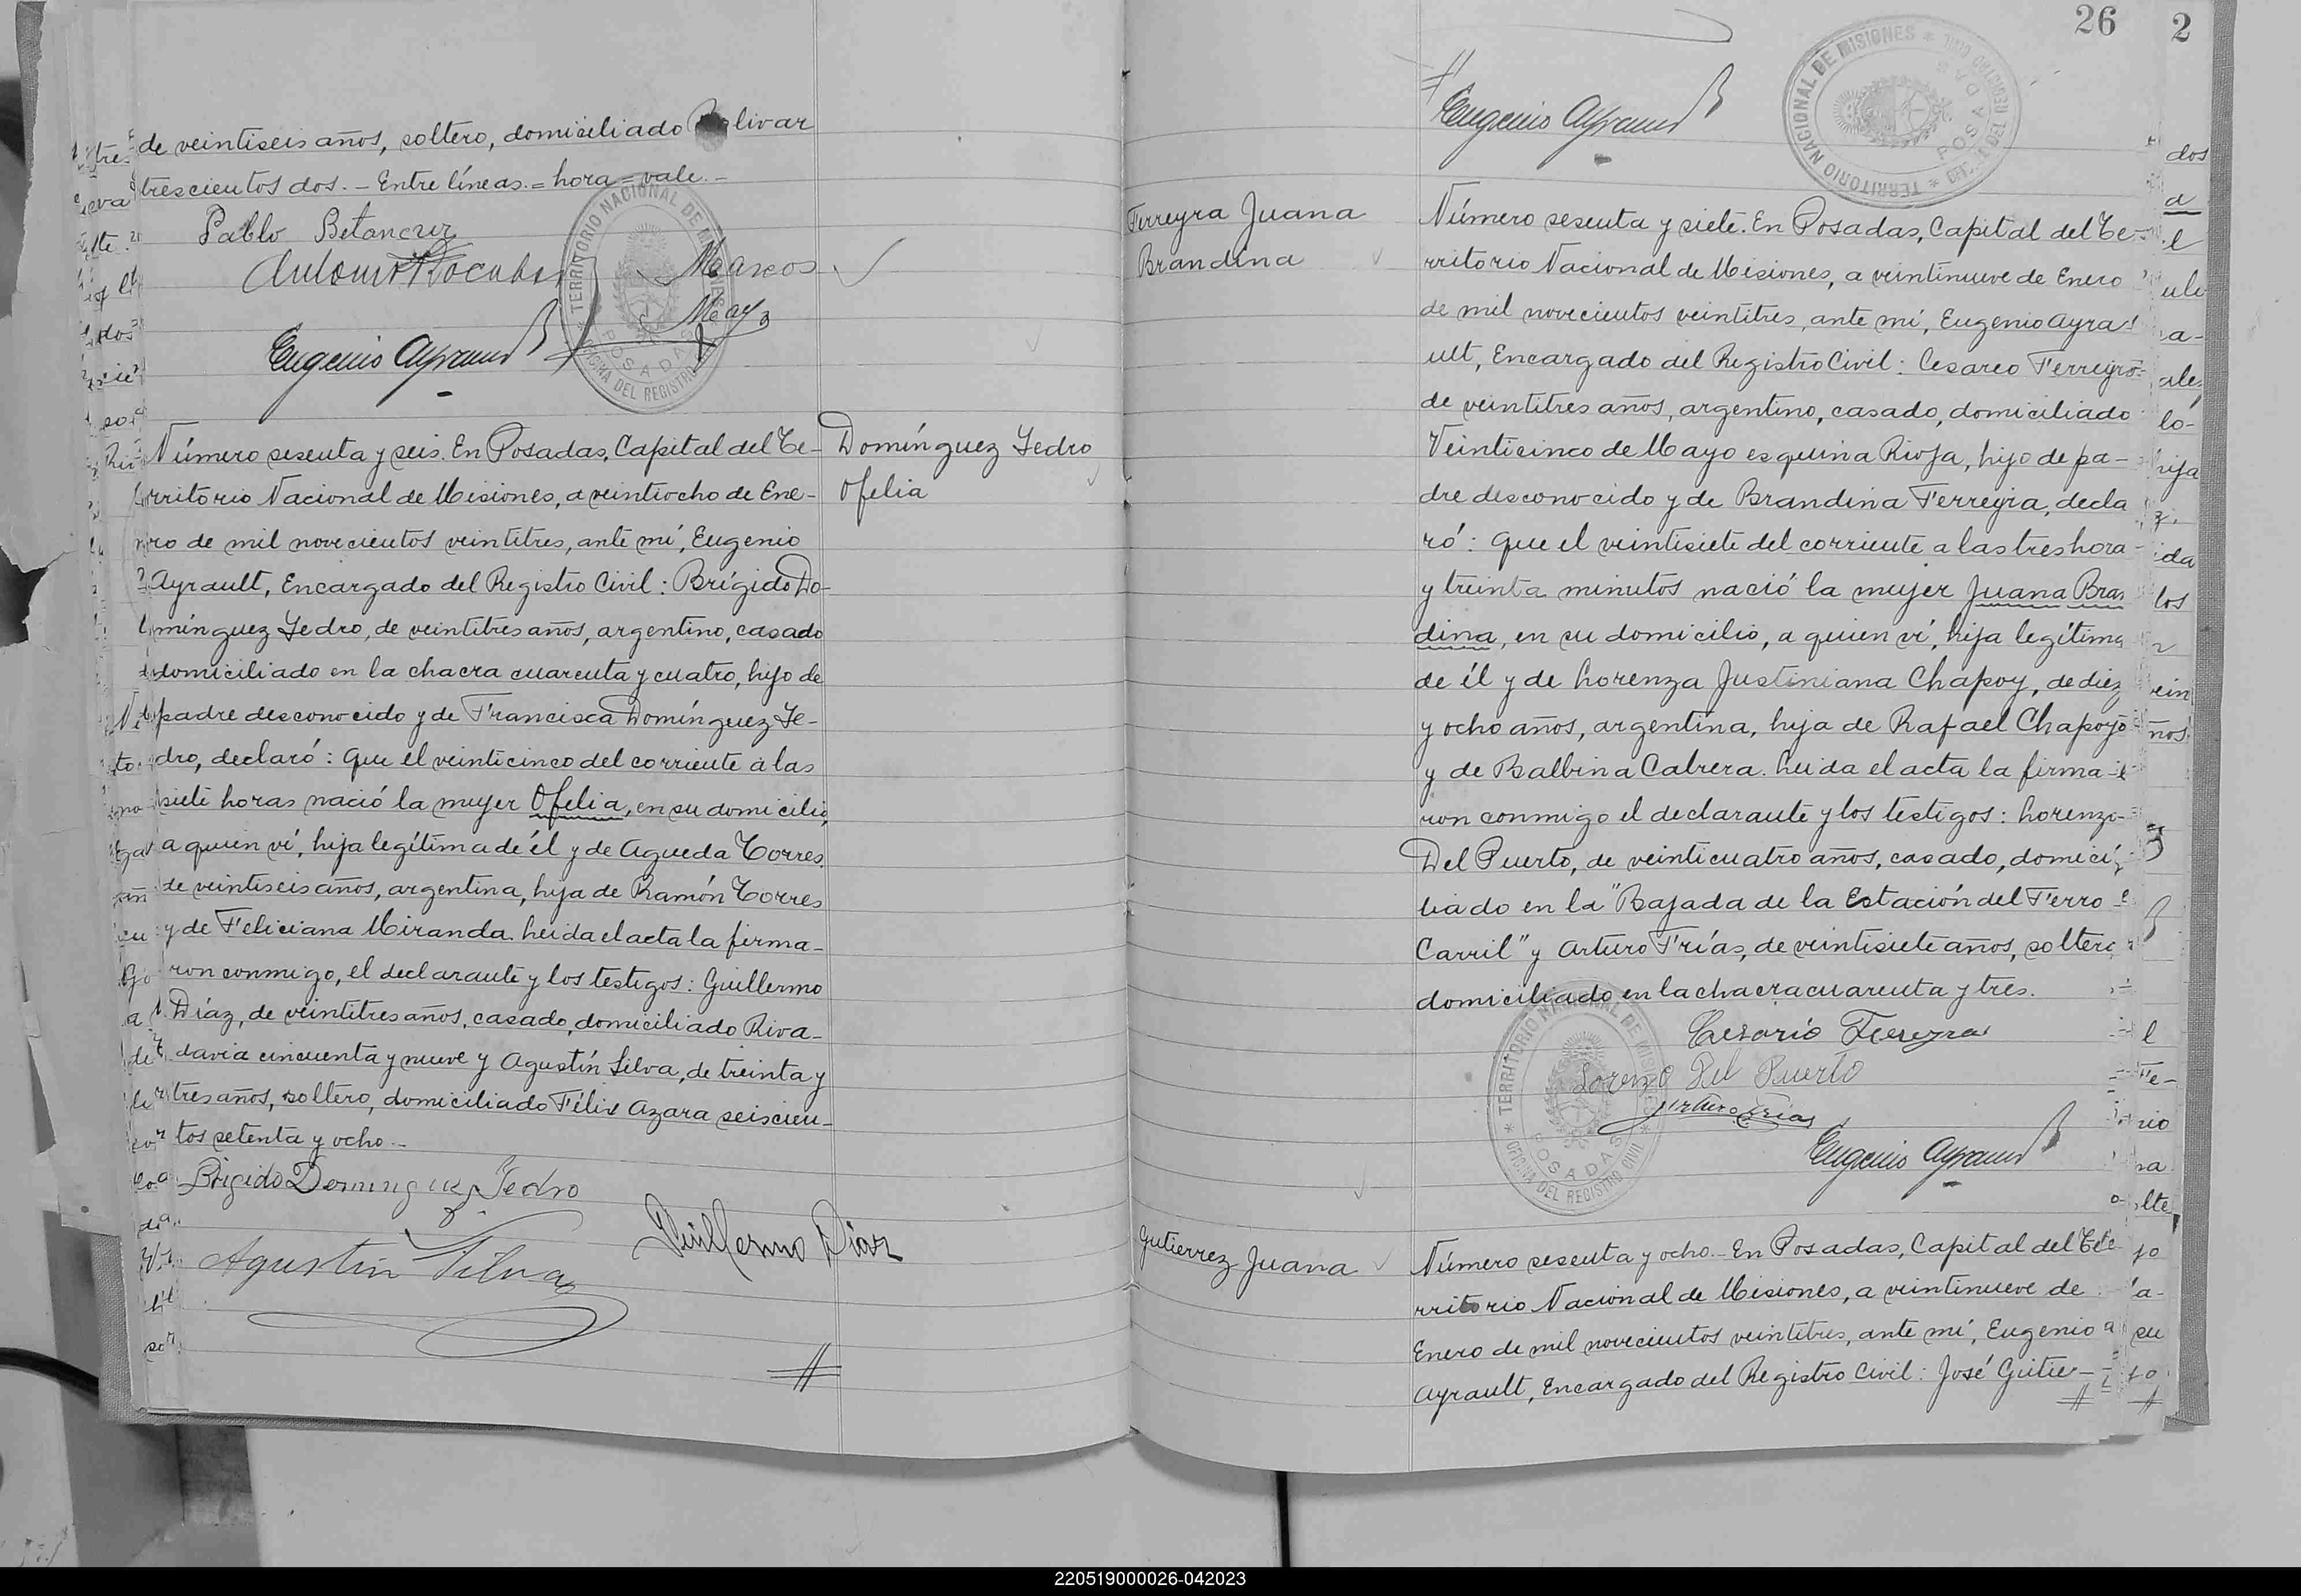 de veintiseis años, soltero, domiciliado Bolivar
trescientos dos. - Entre líneas. = hora = vale. -
Pablo Betancur
Marcos
May
Eugenio Ayrault
TERRITORIO NACIONAL DE MISIONES
OFICINA DEL REGISTRO CIVIL
POSADAS
Domínguez Yedro
Ofelia
Número sesenta y seis. En Posadas, Capital del Te-
rritorio Nacional de Misiones, a veintiocho de Ene-
ro de mil novecientos veintitres, ante mí, Eugenio
Ayrault, Encargado del Registro Civil: Brígido Do-
mínguez Yedro, de veintitres años, argentino, casado
domiciliado en la chacra cuarenta y cuatro, hijo de
padre desconocido y de Francisca Domínguez Ye-
dro, declaró: Que el veinticinco del corriente a las
siete horas nació la mujer Ofelia, en su domicilio,
a quien ví, hija legítima de él y de Agueda Torres,
de veintiseis años, argentina, hija de Ramón Torres
y de Feliciana Miranda. Leida el acta la firma-
ron conmigo, el declarante y los testigos: Guillermo
Díaz, de veintitres años, casado, domiciliado Riva-
davia cincuenta y nueve y Agustín Silva, de treinta y
tres años, soltero, domiciliado Félix Azara seiscien-
tos setenta y ocho. -
Brigido Dominguez Yedro
Guillermo Díaz
Agustin Silva
26 2
Eugenio Ayrault
TERRITORIO NACIONAL DE MISIONES
OFICINA DEL REGISTRO CIVIL
POSADAS
Ferreyra Juana
Brandina
Número sesenta y siete. En Posadas, Capital del Te-
rritorio Nacional de Misiones, a veintinueve de Enero
de mil novecientos veintitres, ante mí, Eugenio Ayra
ult, Encargado del Registro Civil: Cesareo Ferreyra
de veintitres años, argentino, casado, domiciliado
Veinticinco de Mayo esquina Rioja, hijo de pa-
dre desconocido y de Brandina Ferreyra, decla
ró: Que el veintisiete del corriente a las tres hora
y treinta minutos nació la mujer Juana Bran
dina, en su domicilio, a quien ví, hija legítima
de él y de Lorenza Justiniana Chapoy, de diez
y ocho años, argentina, hija de Rafael Chapoy
y de Balbina Cabrera. Leida el acta la firma-
ron conmigo el declarante y los testigos: Lorenzo
Del Puerto, de veinticuatro años, casado, domici-
liado en la "Bajada de la Estación del Ferro
Carril" y Arturo Frías, de veintisiete años, soltero
domiciliado en la chacra cuarenta y tres.
Cesario Ferreyra
Lorenzo Del Puerto
Arturo Frias
Eugenio Ayrault
TERRITORIO NACIONAL DE MISIONES
OFICINA DEL REGISTRO CIVIL
POSADAS
Gutierrez Juana
Número sesenta y ocho. - En Posadas, Capital del Te
rritorio Nacional de Misiones, a veintinueve de
Enero de mil novecientos veintitres, ante mí, Eugenio
Ayrault, Encargado del Registro Civil: José Gutie-
220519000026-042023